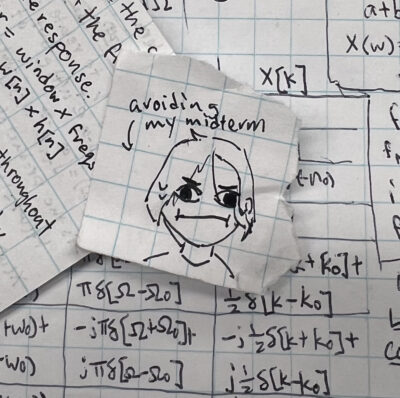 the response.
r = window x freqs
w[n] x h[n]
throughout
avoiding
my midterm
X[k]
a+b
X(w)=
πδ[Ω-Ω₀]
½δ[k-k₀]
-jπδ[Ω+Ω₀]+
-j½δ[k+k₀]+
jπδ[Ω-Ω₀]
j½δ[k-k₀]